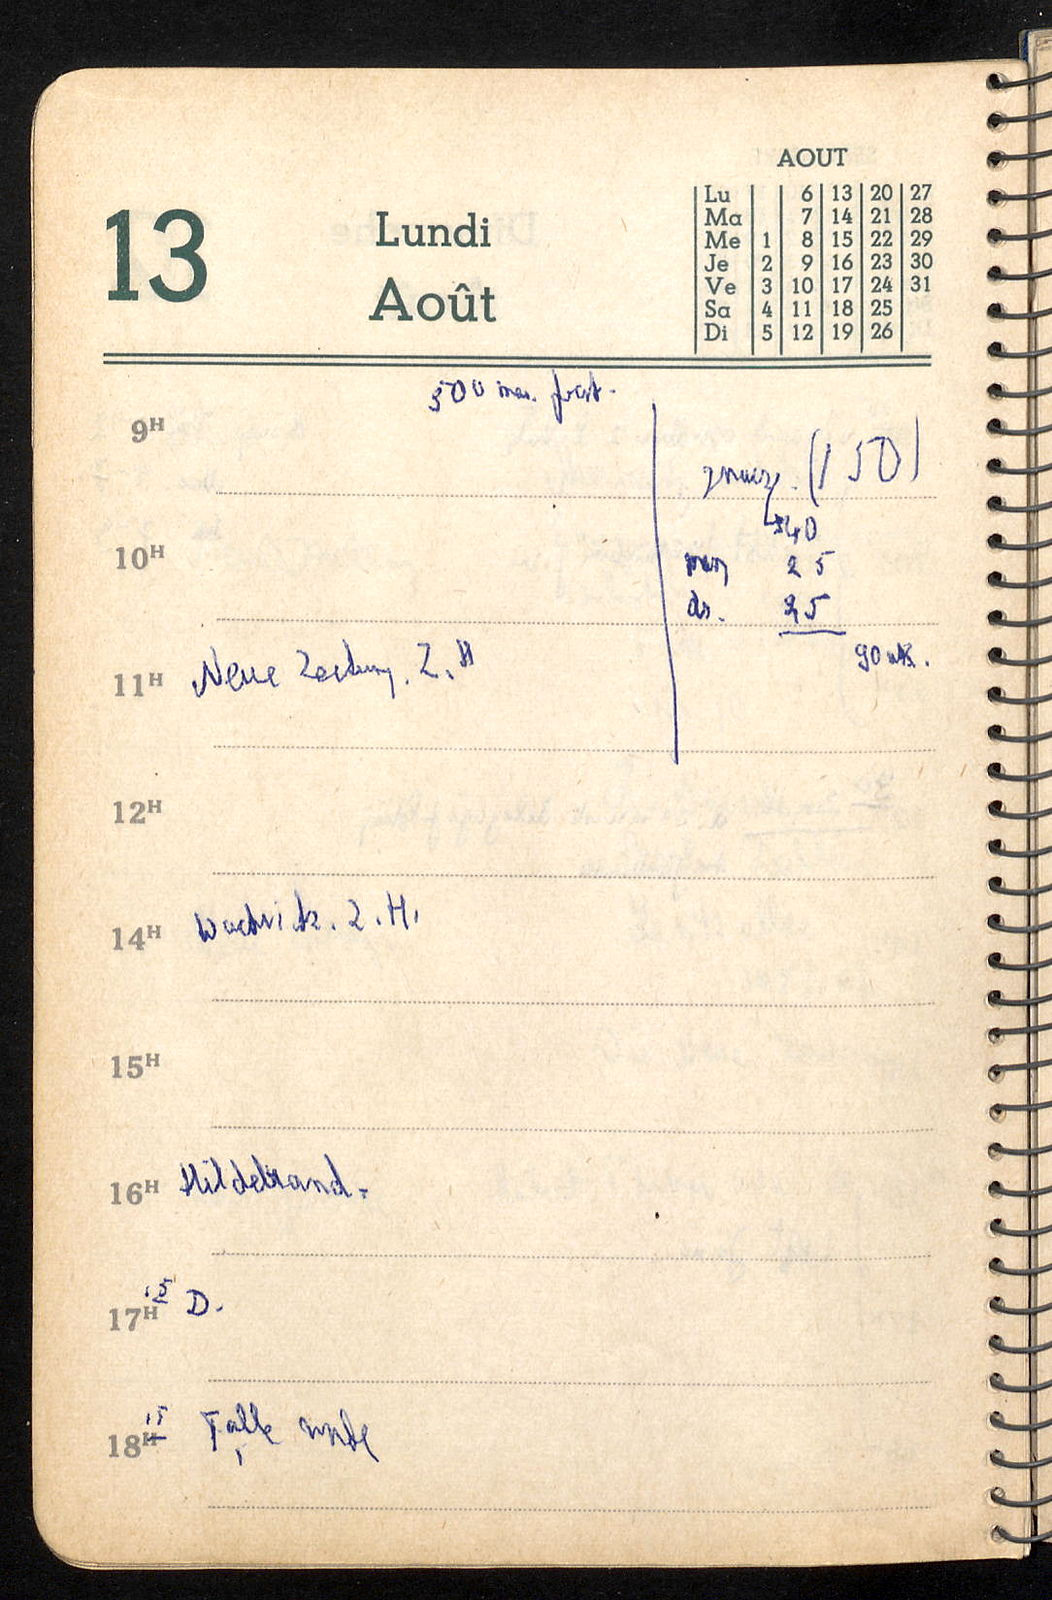 AOUT
13
Lundi
Août
Lu 6 13 20 27
Ma 7 14 21 28
Me 1 8 15 22 29
Je 2 9 16 23 30
Ve 3 10 17 24 31
Sa 4 11 18 25
Di 5 12 19 26
500
9H
(150)
40
10H
25
dr. 25
90
11H Neue Zeitung. Z. H
12H
14H
15H
16H Hildebrand.
17H 15 D.
18H 15 Falk